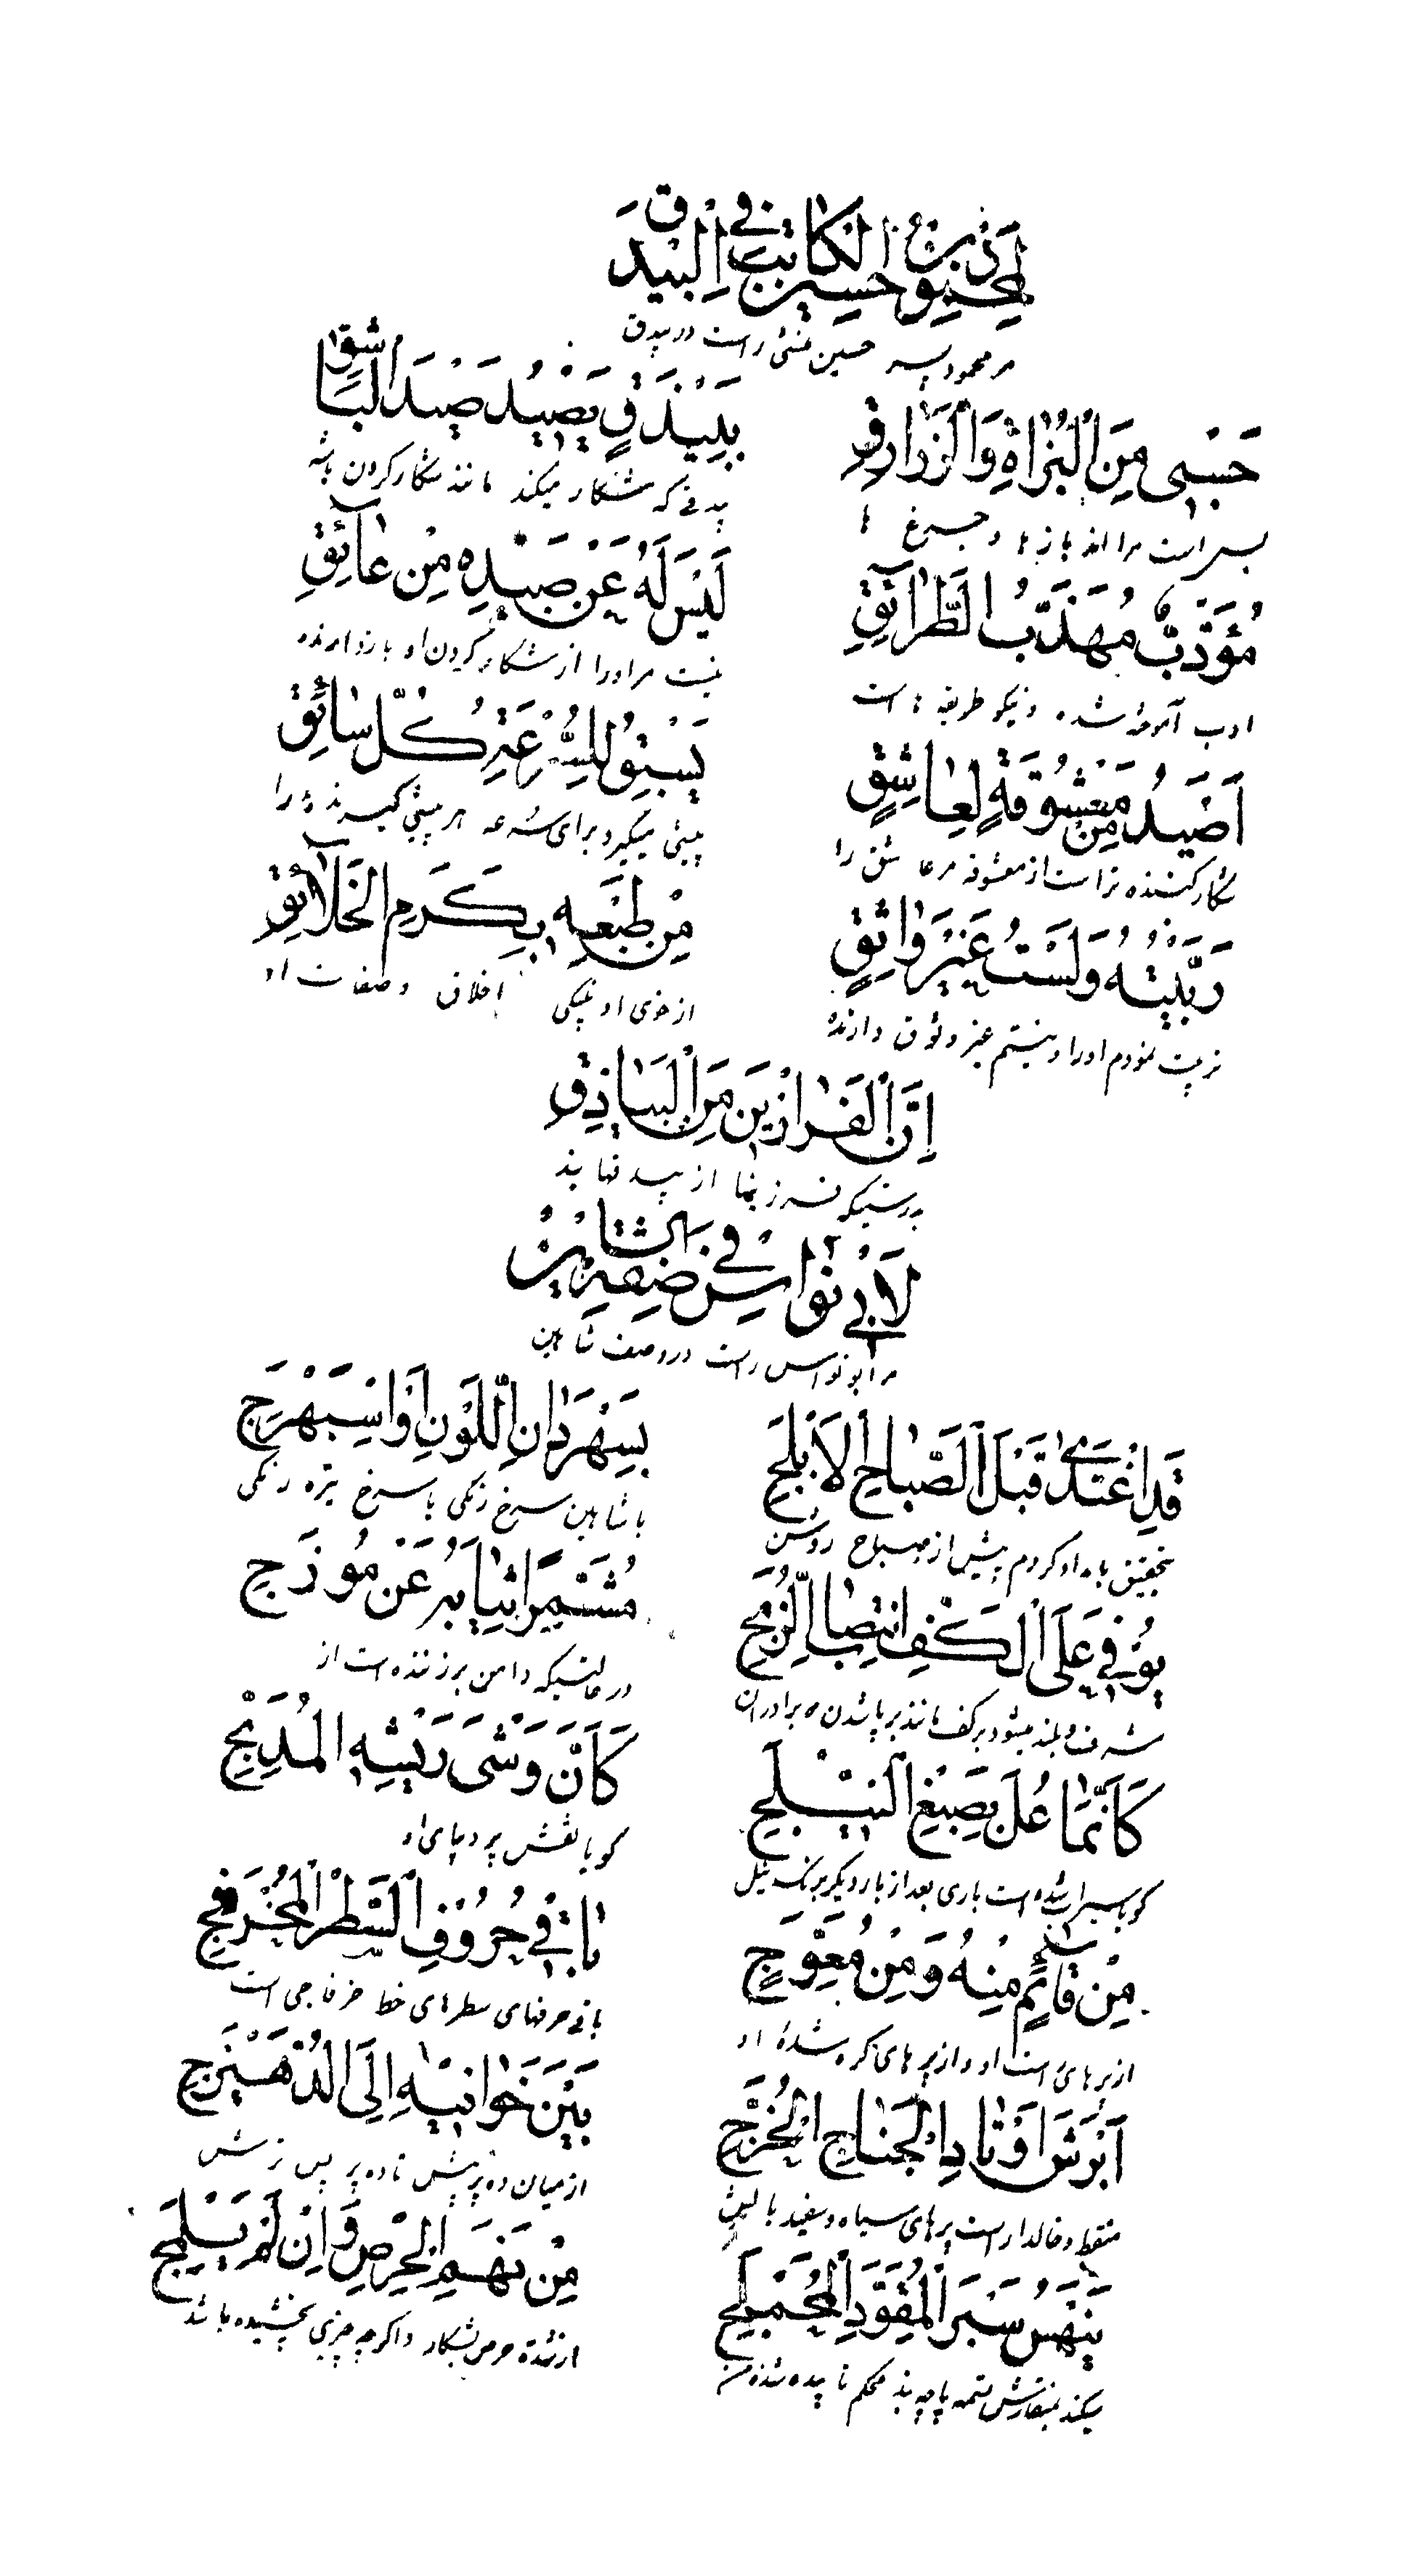 لمحمود بن حسين الكاتب في البيدق
مر محمود پسر حسین منشی راست در بیدق
حَسْبِي مِنَ الْبُزَاةِ وَالزَّرَارِقِ
بِبَيْذَقٍ يَصِيْدُ صَيْدَ الْبَاشِقِ
بس است مرا از بازها و چرغ ها
بیدقی که شکار میکند مانند شکار کردن باشه
مُؤَدَّبٌ مُهَذَّبُ الطَّرَائِقِ
لَيْسَ لَهُ عَنْ صَيْدِهِ مِنْ عَائِقِ
ادب آموخته شده و نیکو طریقه ها است
نیست مر او را از شکار کردن او بازدارنده
اَصْيَدُ مِنْ مَعْشُوْقَةٍ لِعَاشِقٍ
يَسْبِقُ لِلسُّرْعَةِ كُلَّ سَائِقِ
شکار کننده تر است از معشوقه مر عاشق را
پیشی میگیرد برای سرعه هر پیشی گیرنده را
رَبَّيْتُهُ وَلَسْتُ غَيْرَ وَاثِقٍ
مِنْ طَبْعِهِ بِكَرَمِ الْخَلَائِقِ
تربیت نمودم او را و نیستم غیر وثوق دارنده
از خوی او به نیکی اخلاق و صفات او
اِنَّ الْفَرَازِيْنَ مِنَ الْبَيَاذِقِ
بدرستیکه فرزینها از بیدقها یند
لِاَبِي نُوَاسٍ فِي صِفَةِ الشَّاهِيْنِ
مر ابو نواس راست در وصف شاهین
قَدْ اَغْتَدِي قَبْلَ الصَّبَاحِ الْاَبْلَجِ
بِسَهْرَدَانِ اللَّوْنِ اَوْ اِسْبَهْرَجِ
بتحقیق بامداد کردم پیش از صباح روشن
با شاهین سرخ رنگی یا سرخ تیره رنگی
يُوْفِي عَلَى الْكَفِّ انْتِصَابَ الزُّمَّجِ
مُشَمِّرًا ثِيَابَهُ عَنْ مُوْزَجِ
شرف و بلند میشود بر کف مانند برپا شدن دو برادران
در حالتیکه دامن برزننده است از
كَاَنَّمَا عُلَّ بِصِبْغِ النِّيْلَجِ
كَاَنَّ وَشْيَ رِيْشِهِ الْمُدَبَّجِ
گویا سیراب شده است باری بعد از بار دیگر برنگ نیل
گویا نقش پر دیبای او
مِنْ قَائِمٍ مِنْهُ وَمِنْ مُعَوَّجٍ
بَاقِي حُرُوْفِ السَّطْرِ الْمُخَرْفَجِ
از پرهای است او و از پرهای کره شدۀ او
باقی حرفهای سطرهای خط خرفاجی است
اَبْرَشَ اَوْتَادِ الْجَنَاحِ الْخُرَّجِ
بَيْنَ خَوَافِيْهِ اِلَى الدَّهَنْزَجِ
منقط و خالدار است پرهای سیاه و سفید بالش
از میان ده پر پیش تا ده پر پس ترش
يَنْهَسُ سَيْرَ الْمِقْوَدِ الْمُحَمْلَجِ
مِنْ نَهَمِ الْحِرْصِ وَاِنْ لَمْ يَلْمَجِ
میکند بمنقارش تسمه پاچه بند محکم تابیده شده
از شدة حرص بشکار و اگرچه چیزی نچشیده باشد